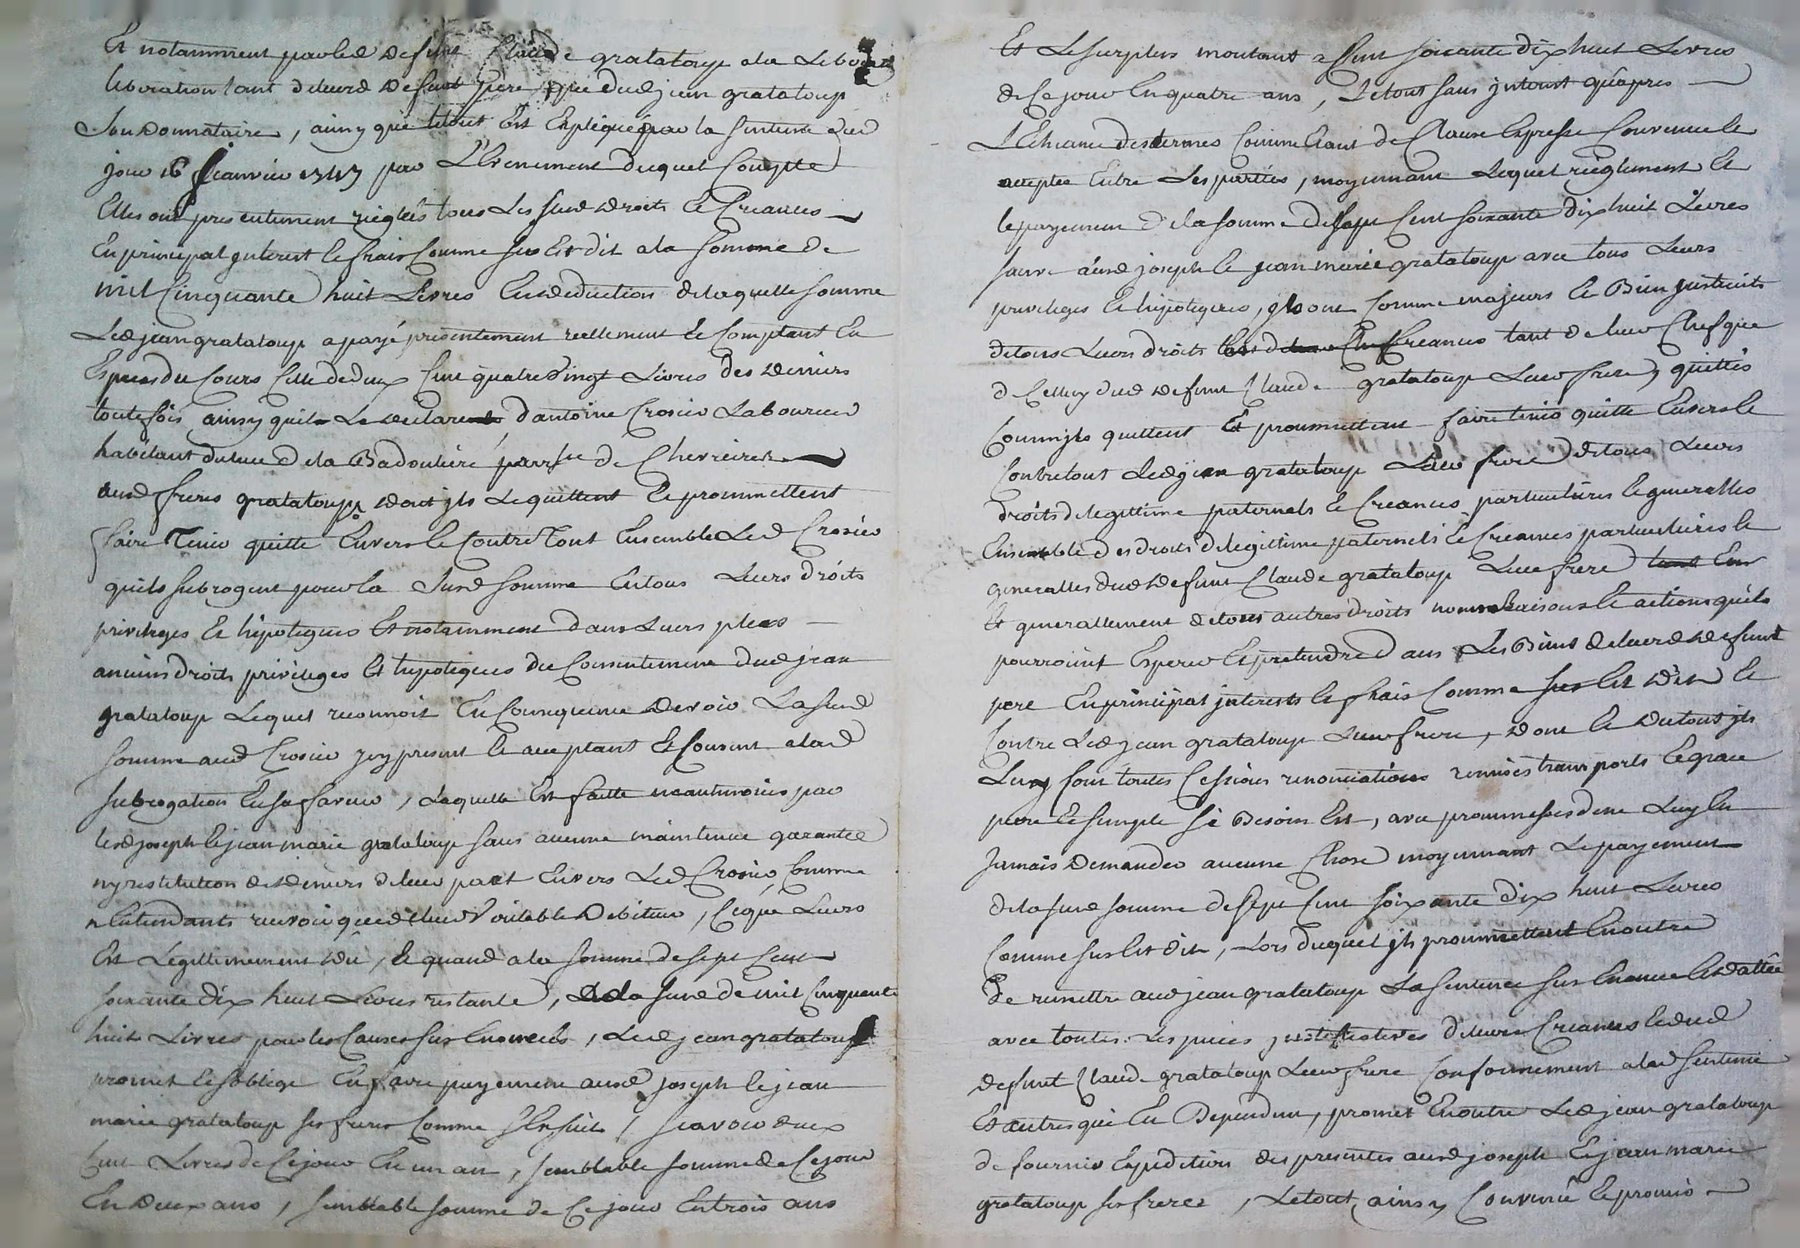 Et notamment par led defunt Claude grataloup a la
liberation tant de leurd defunt pere que dud jean grataloup
Son Donnataire, ainsy que letout Est Expliqué par la Sentence dud
jour 16 Janvier 1747 par L'Evenement duquel Compte
Elles ont presentement rieglés tous Les susd Droits Et Creances
En principal jnterest Et frais Comme sus Est dit a la somme de
mil Cinquante huit Livres En deduction de laquelle somme
Led jean grataloup a payé presentement reellement Et Comptant En
Especes du Cours Celle de deux Cent quatre vingt Livres des deniers
toutefois ainsy quil Le declare d'antoine Crosier Laboureur
habitant du lieu de la Badouliere parrsse de Chevrieres
ausd freres grataloup dont jls Le quittent Et prommettent
faire Tenir quitte Envers Et Contre Tout Ensemble Led Crosier
quils subrogent pour la Susd somme En tous Leurs droits
privileges Et hipoteques Et notamment dans Leurs plus
anciens droits privileges Et hipoteques du Consentement dud jean
grataloup Lequel reconnoit En Consequence devoir La susd
somme aud Crosier jcy present Et acceptant Et Consent a lad
subrogation En sa faveur, Laquelle Est faitte neantmoins par
lesd joseph Et jean marie grataloup sans aucune maintenue garantie
ny restitution de deniers de leur part Envers Led Crosier Comme
n'Entendants recevoir que de leur Veritable Debiteur, Ce qui Leurs
Est Légittimement dû, Et quand a la somme de sept Cent
soixante dix huit Livres restante, de la susd de mil Cinquante
huit Livres pour les Causes sus Enoncées, Led jean grataloup
promet Et s'oblige En faire payement ausd joseph Et jean
marie grataloup ses freres Comme s'Ensuit, scavoir deux
Cent Livres de Ce jour En un an, semblable somme de Ce jour
En deux ans, semblable somme de Ce jour En trois ans
Et Le surplus montant a Cent soixante dix huit Livres
de Ce jour En quatre ans, Letout sans jnterest qu'apres
L'Echeance des termes Comme Etant de Clause Expresse Convenue Et
acceptée Entre Les parties, moyennant Lequel rieglement Et
le payement de la somme de sept Cent soixante dix huit Livres
sauve ausd joseph Et jean marie grataloup avec tous Leurs
privileges Et hipoteques, jls ont Comme majeurs Et Bien justruits
de tous Leurs droits Et Creances tant de leur Chef que
de Celluy dud defunt Claude grataloup Leur frere quittés
Comme jls quittent Et prommettent faire tenir quitte Envers Et
Contre tout Led jean grataloup Leur frere de tous Leurs
droits de legittime paternels Et Creances particulieres Et generalles
Ensemble des droits de legittime paternels Et Creances particulieres Et
generalles dud defunt Claude grataloup Leur frere
Et generallement de tous autres droits noms raisons Et actions quils
pourroient Esperer Et pretendre dans Les Biens de leurd defunt
pere En principal jnterests Et frais Comme sus Est dit Et
Contre Led jean grataloup Leur frere, dont Et du tout jls
Luy font toutes Cessions renonciations remises transports Et grace
pure Et simple si Besoin Est, avec prommesses de ne Luy En
Jamais demander aucune Chose moyennant Le payement
de la susd somme de sept Cent soixante dix huit Livres
Comme sus Est dit, Lors duquel jls prommettent En outre
De remettre aud jean grataloup La sentence sus Enoncée Et dattée
avec toutes Les pieces justificatives de leurs Creances Et dud
defunt Claude grataloup Leur frere Conformement a lad sentence
Et autres qui En Dependent, promet En outre Led jean grataloup
de fournir Expedition des presentes ausd joseph Et jean marie
grataloup ses freres, Letout ainsy Convenu Et promis